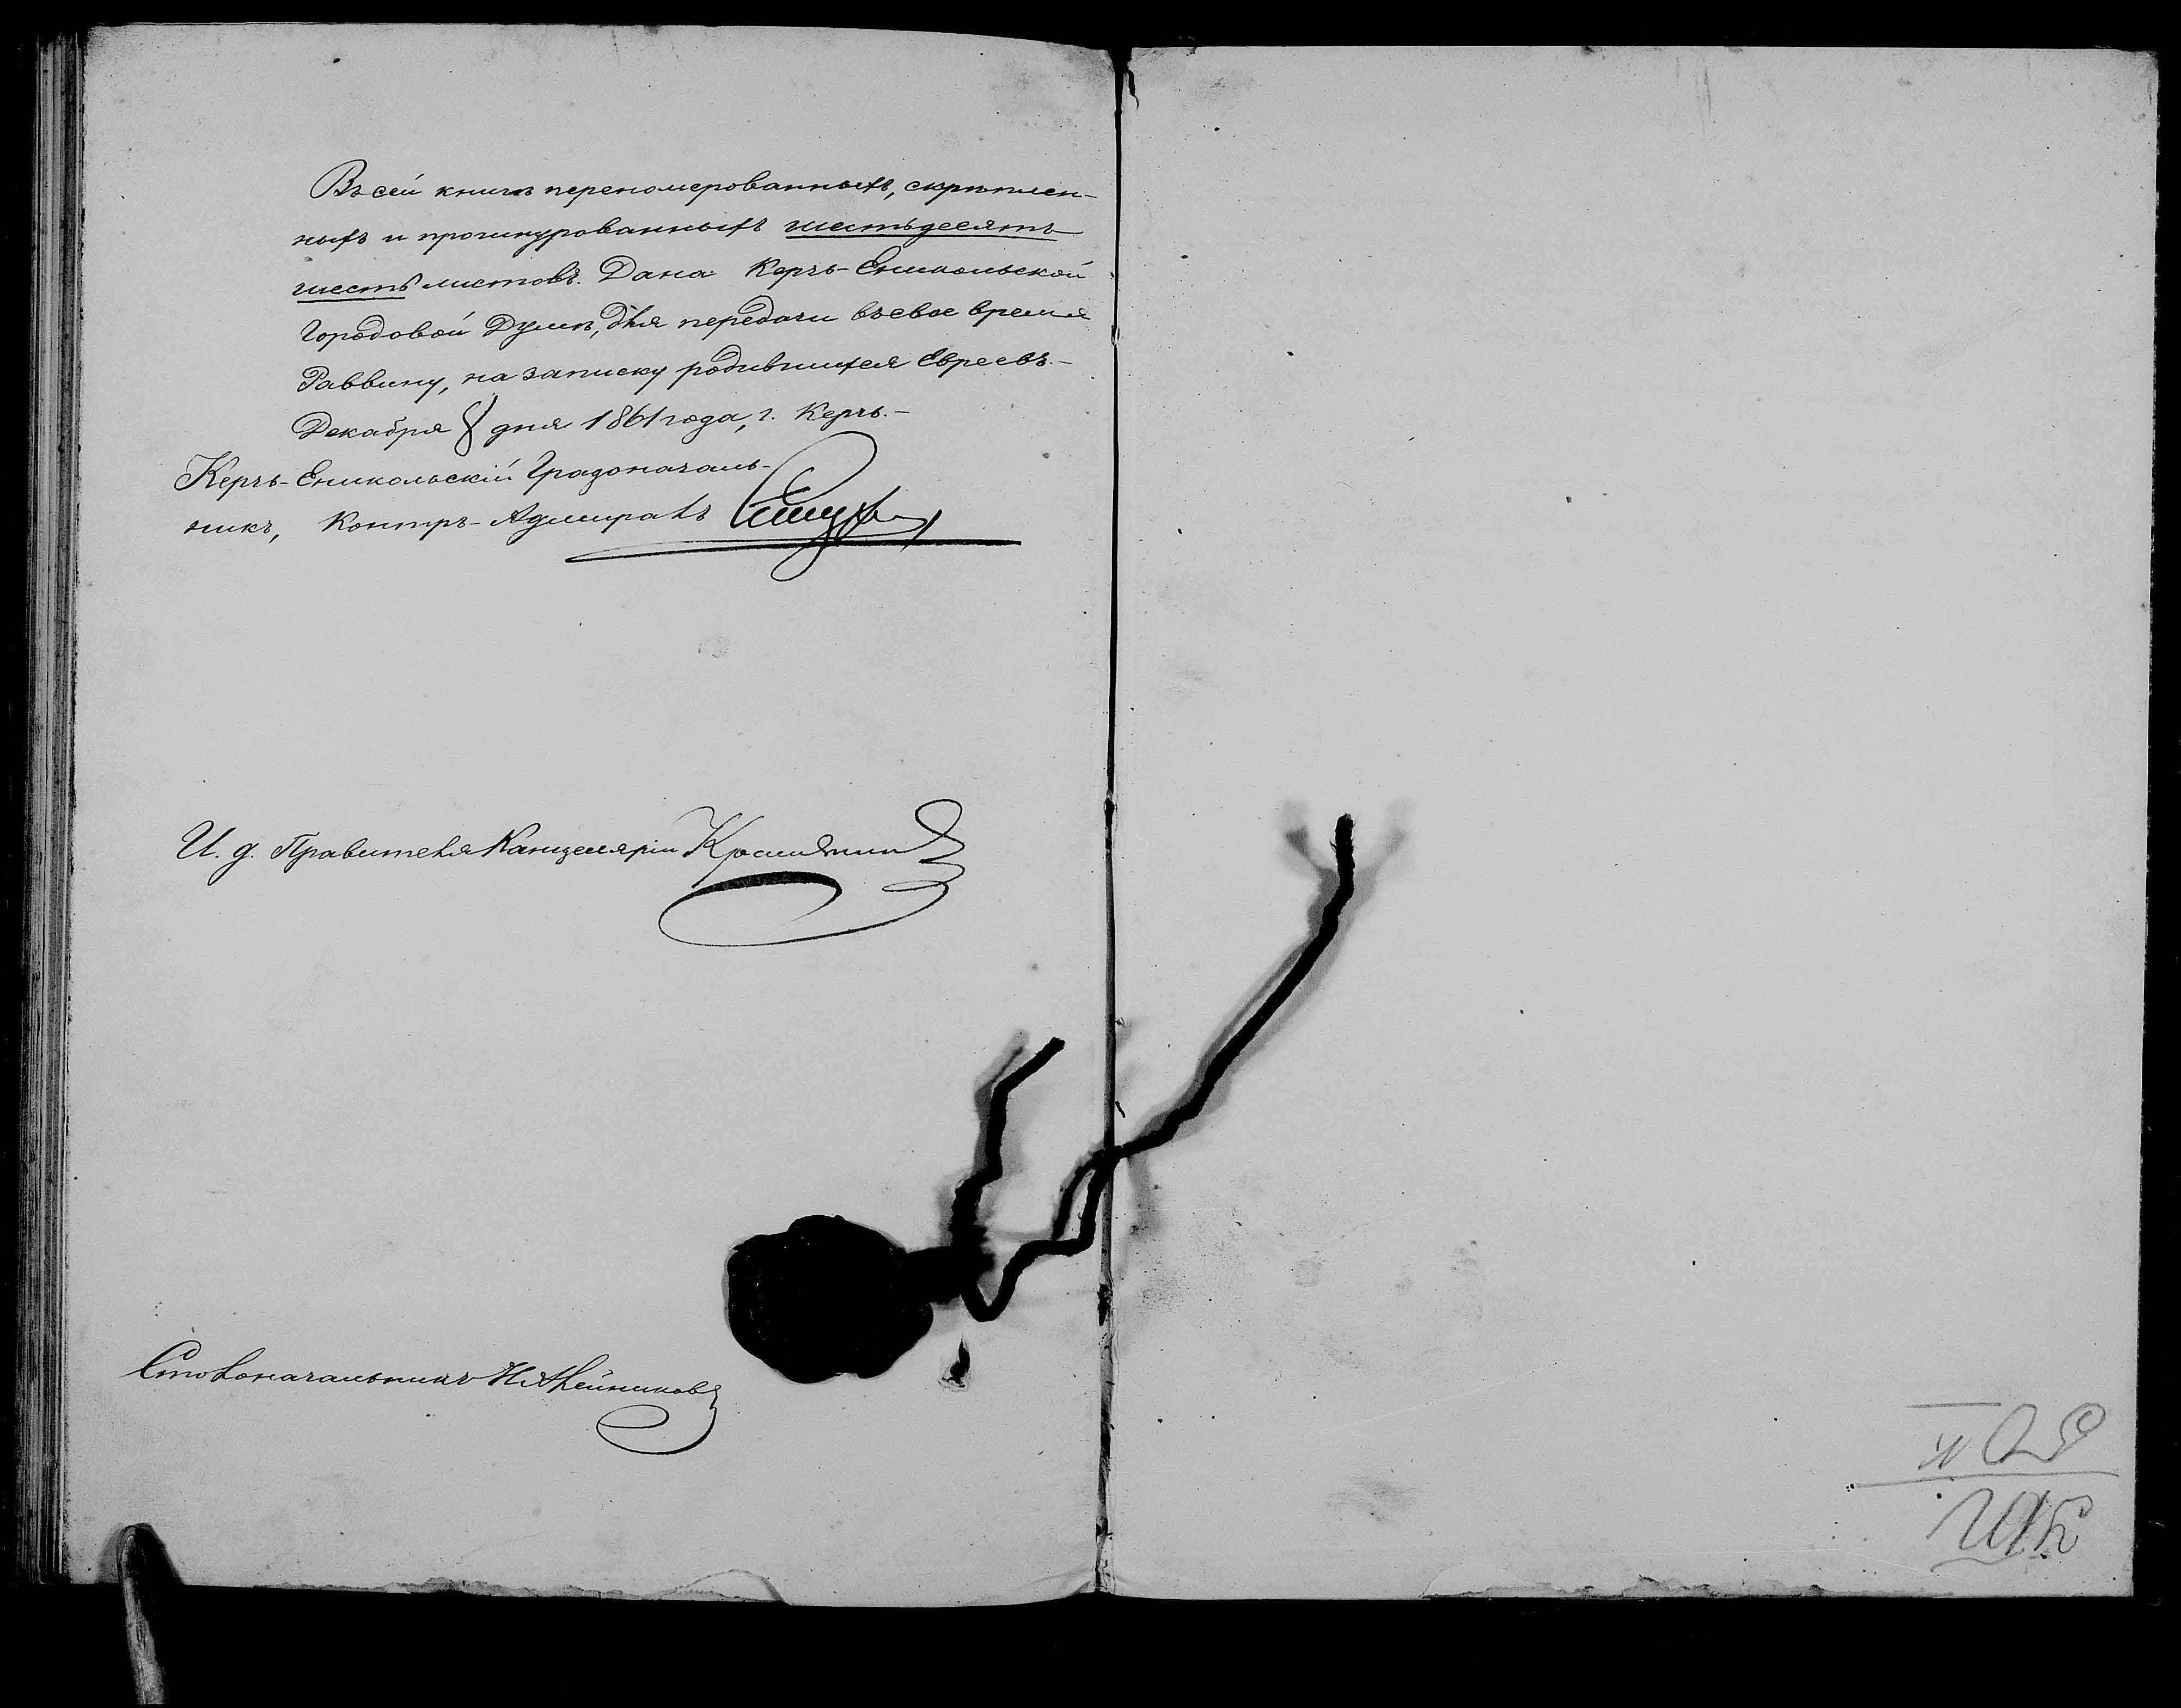 Въ сей книгѣ переномерованныхъ, скрѣплен-
ныхъ и прошнурованныхъ шестьдесятъ
шесть листовъ. Дана Керчь-Еникольской
Городовой Думѣ, для передачи въ свое время
Раввину, на записку родившихся Евреевъ.-
Декабря 8 дня 1861 года, г. Керчь.-
Керчь-Еникольскій Градоначаль-
никъ, Контръ-Адмиралъ
И. д. Правителя Канцеляріи
Столоначальникъ